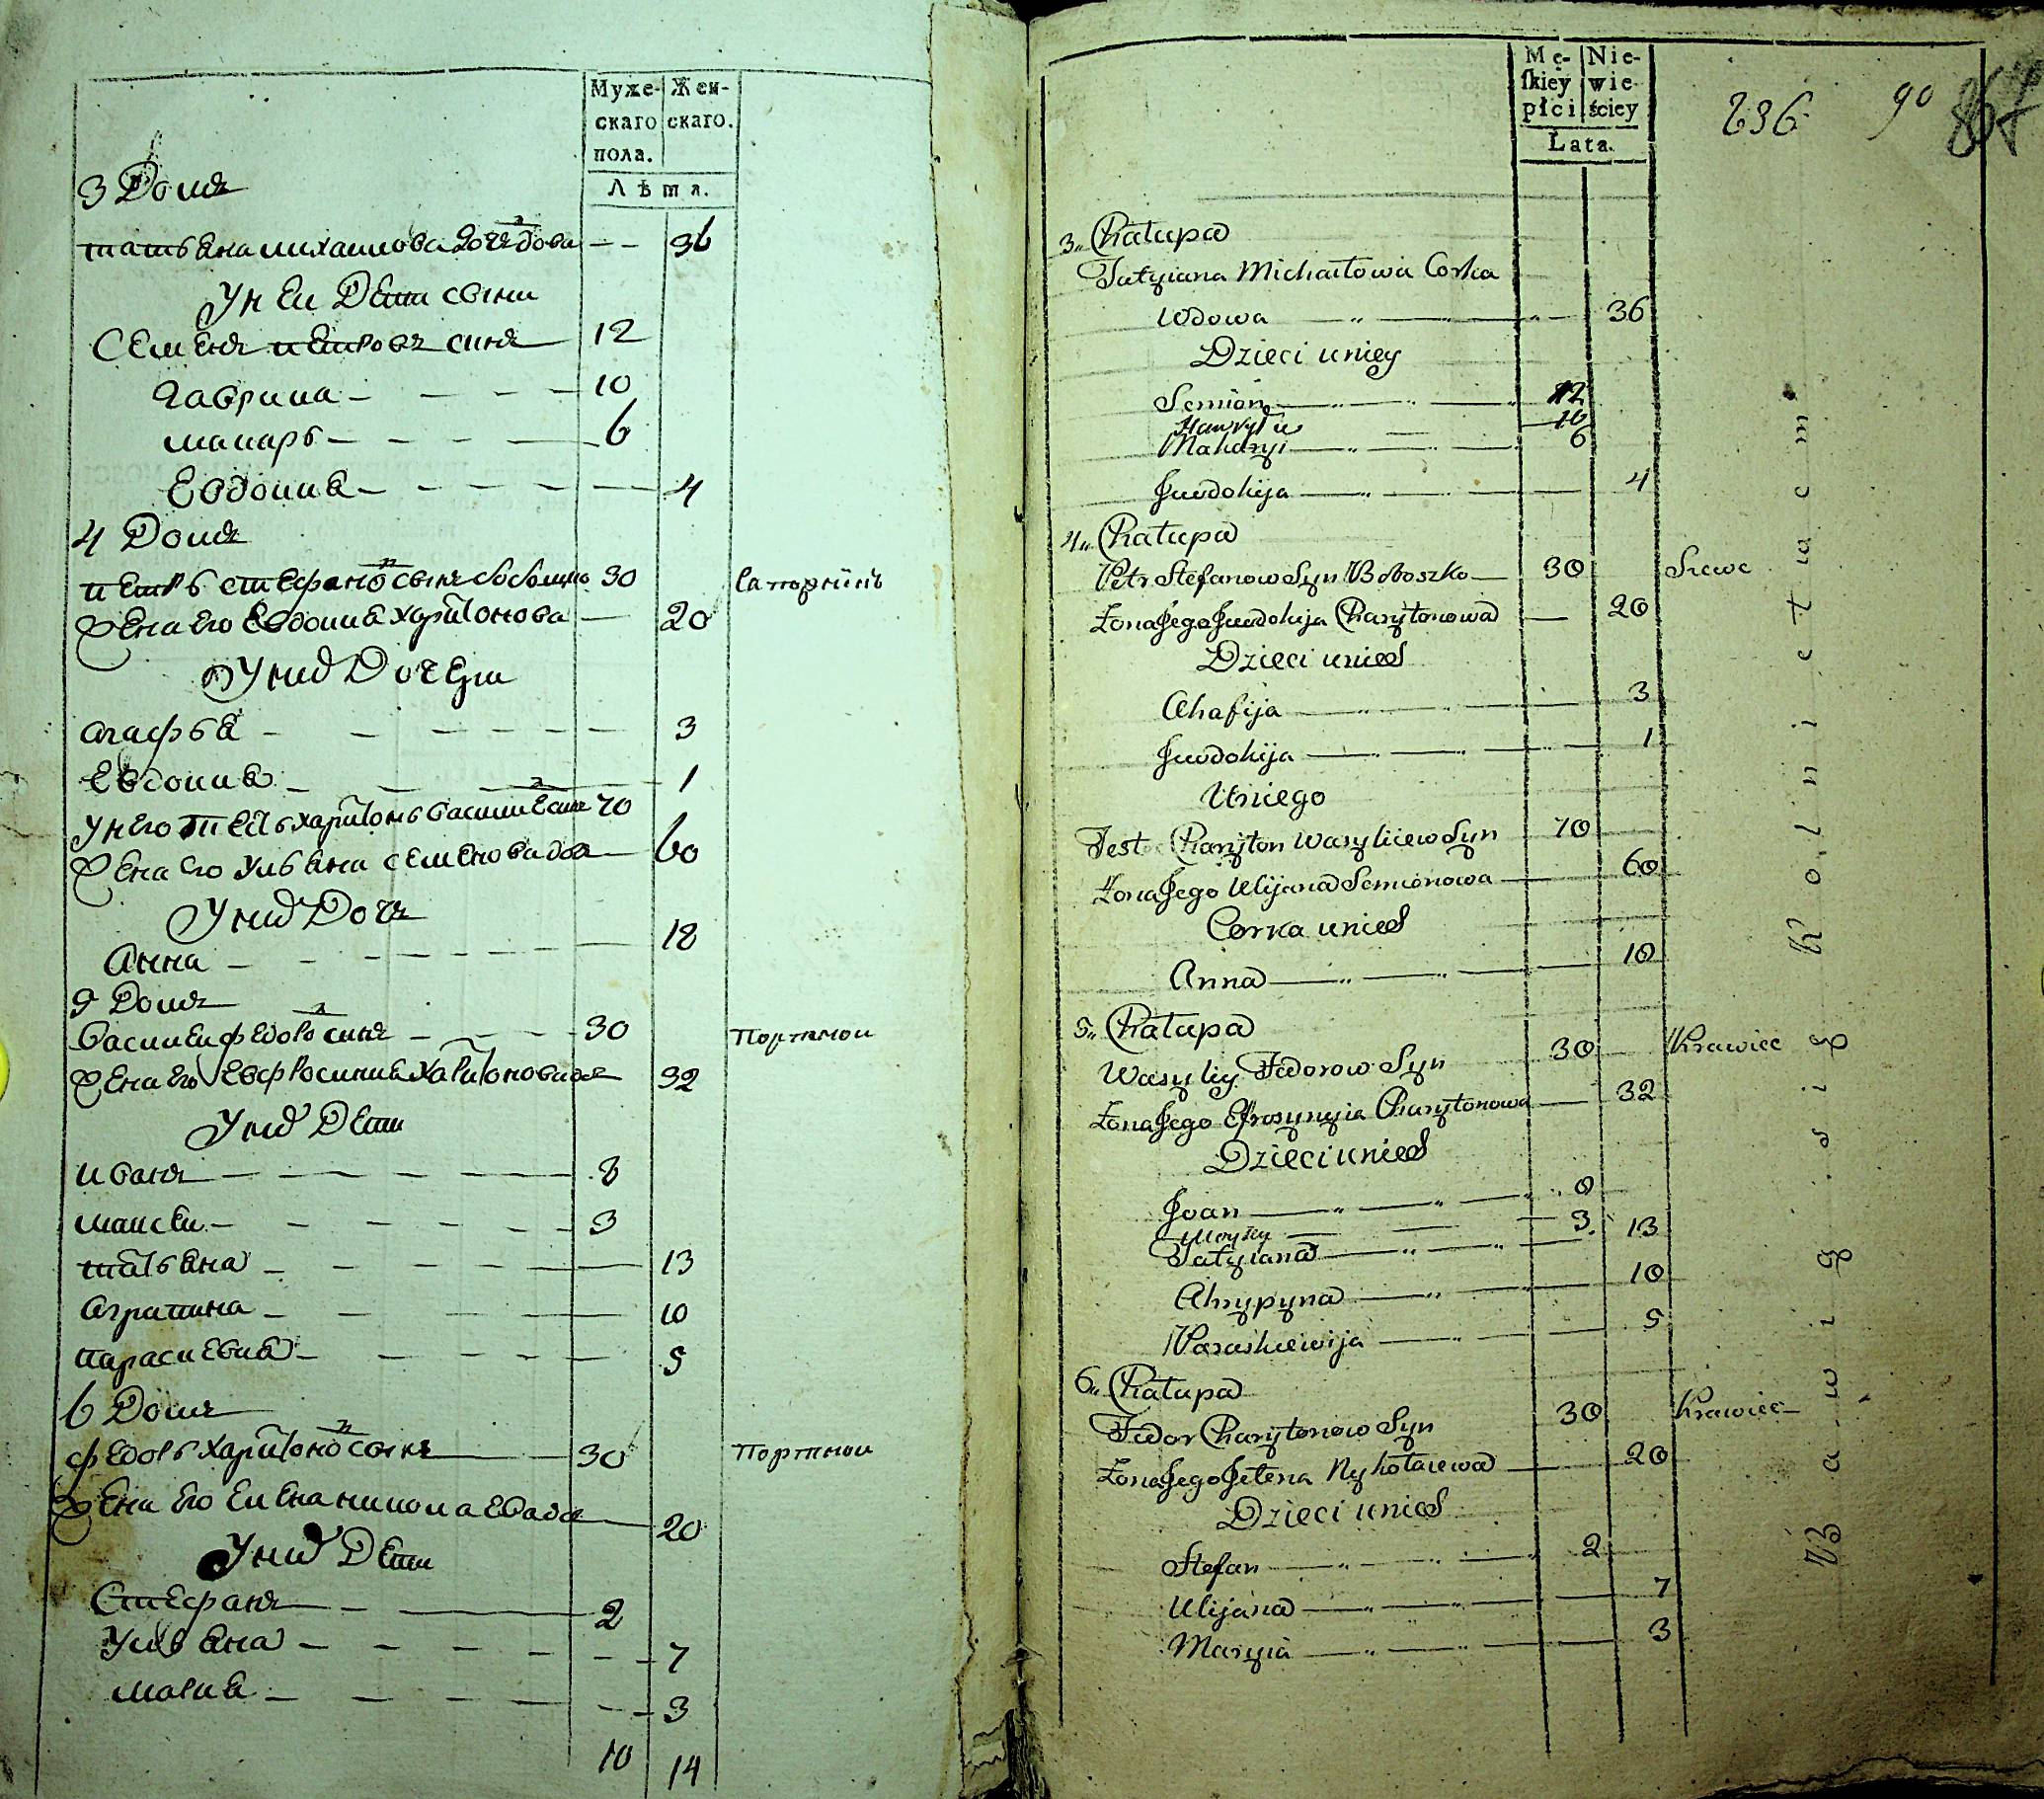 Муже-
скаго
пола.
Жен-
скаго.
Лѣта.
3 Домъ
татьяна михаилова дочь вдова — — 36
У н еи Дети сыни
Семенъ петровъ синъ 12
гаврила — — — — 10
макаръ — — — — 6
Евдокия — — — — 4
4 Домъ
петръ стефановъ сынъ 30 сапожникъ
Жена его Евдокия харитонова — 20
У нихъ Дочери
агафья — — — — — 3
Евдокия — — — — 1
У него тесть харитонъ василиевъ 70
Жена его ульяна семенова до — 60
У нихъ Дочь
Анна — — — — — 18
5 Домъ
Василеи федоро синъ — — — 30 портнои
Жена его Евфросиния Харитонова до 32
У нихъ Дети
иванъ — — — — 8
Моисеи — — — — 3
татьяна — — — — 13
агрипина — — — — 10
параскевия — — — — 5
6 Домъ
федоръ харитоно сынъ — 30 портнои
Жена его Елена николаева до — 20
У нихъ Дети
Стефанъ — — 2
Ульяна — — — — — — 7
мария — — — — — — 3
10 14
Mę-
skiey
płci
Nie-
wie-
ściey
Lata.
236. 90 867
3„ Chałupa
Tatyiana Michaiłowia Corka
Wdowa — „ — „ — 36
Dzieci uniey
Semion — „ — „ — 12
Hawryło — 10
Makaryi — „ — „ — 6
Jewdokija — „ — — 4
4„ Chałupa
Petr Stefanow Syn Boboszko — 30 Szewc
Zona Jego Jewdokija Charytonowa — 20
Dzieci unich
Ahafija — „ — „ — 3
Jewdokija — — „ — — 1
Uniego
Test Charyton Wasyliiew Syn 70
Zona Jego Ulijana Semionowa — 60
Corka unich
Anna — „ — „ — 18
5„ Chałupa
Wasyliy Fedorow Syn 30 Krawiec
Zona Jego Efrosynyia Charytonowa — 32
Dzieci unich
Iwan — „ — „ — 8
Moyżey — — — 3
Tatyiana — „ — „ — 13
Ahrypyna — „ — — 10
Paraskiewija — „ — — 5
6„ Chałupa
Fedor Charytonow Syn 30 Krawiec
Zona Jego Jelena Nykołaiewa — 20
Dzieci unich
Stefan — „ — „ — 2
Ulijana — „ — „ — 7
Maryia — „ — „ — 3